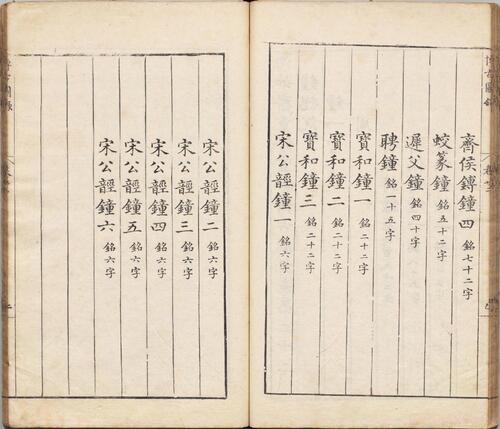 齊侯鎛鐘四 銘七十二字
蛟篆鐘 銘五十二字
遲父鐘 銘四十字
聘鐘 銘二十五字
寶和鐘一 銘二十二字
寶和鐘二 銘二十二字
寶和鐘三 銘二十二字
宋公䪫鐘一 銘六字
宋公䪫鐘二 銘六字
宋公䪫鐘三 銘六字
宋公䪫鐘四 銘六字
宋公䪫鐘五 銘六字
宋公䪫鐘六 銘六字